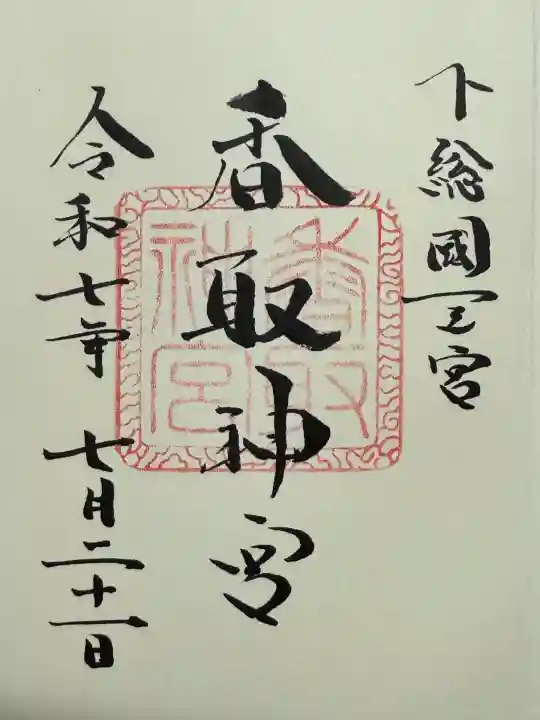 下総國一之宮
香取神宮
香取神宮
令和七年 七月二十一日